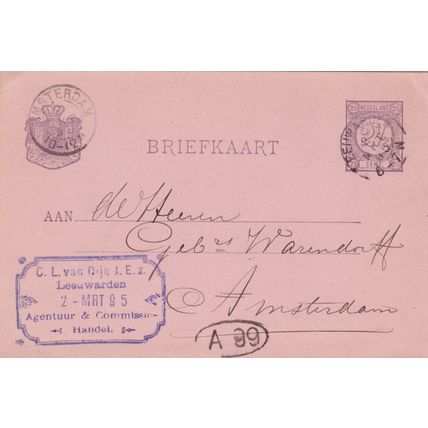 AMSTERDAM
10-12
NEDERLAND
BRIEFKAART
AAN de Heeren
Gebrs Warendorff
Amsterdam
C. L. van Dijk J. E. z.
Leeuwarden
2 - MRT 95
Agentuur & Commissie-
Handel.
A 99